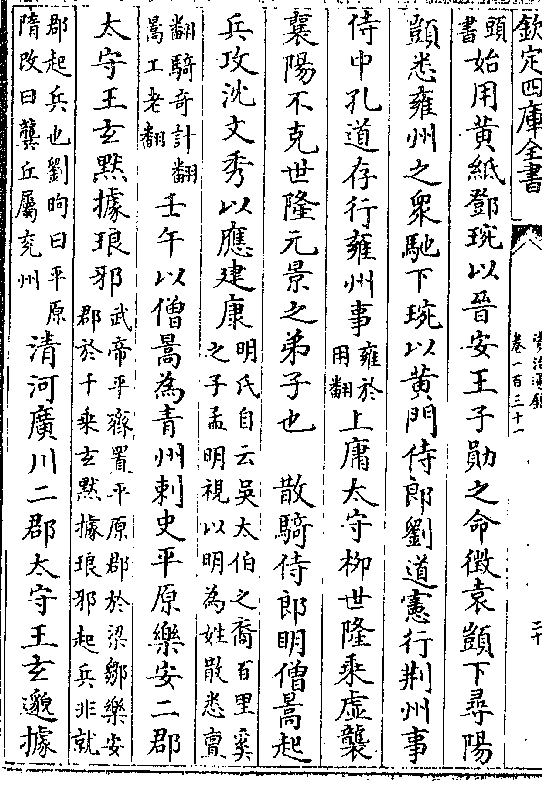 欽定四庫全書
資治通鑑
卷一百三十一
二十
頭書始用黃紙鄧琬以晉安王子勛之命徵袁顗下尋陽
顗悉雍州之衆馳下琬以黃門侍郎劉道憲行荆州事
侍中孔道存行雍州事雍於用翻上庸太守柳世隆乘虛襲
襄陽不克世隆元景之弟子也 散騎侍郎明僧暠起
兵攻沈文秀以應建康明氏自云吳太伯之裔百里奚之子孟明視以明為姓散悉亶
翻騎奇計翻暠工老翻壬午以僧暠為青州刺史平原樂安二郡
太守王玄默據琅邪武帝平齊置平原郡於梁鄒樂安郡於千乘玄默據琅邪起兵非就
郡起兵也劉昫曰平原隋改曰龔丘屬兖州清河廣川二郡太守王玄邈據